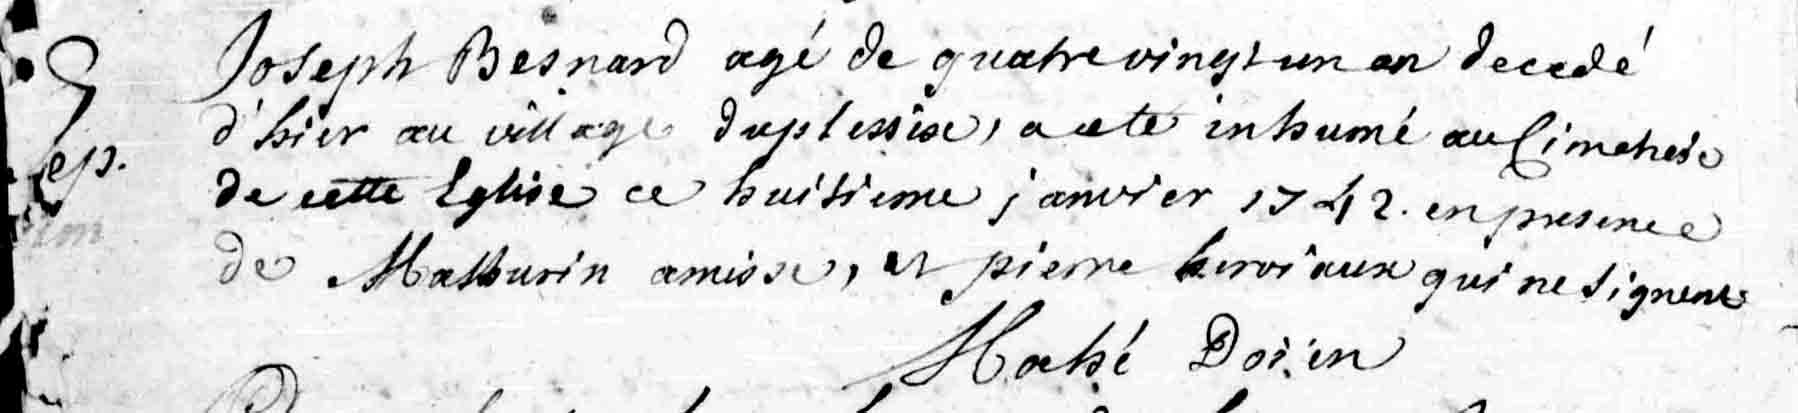 Joseph Besnard agé de quatrevingt un an decedé
d'hier au village duplessix, a eté inhumé au Cimetiere
Sep.
de cette Eglise ce huitieme janvier 1742. en presence
de Mathurin amisse, et pierre herviaux qui ne signent
Mahé Doien